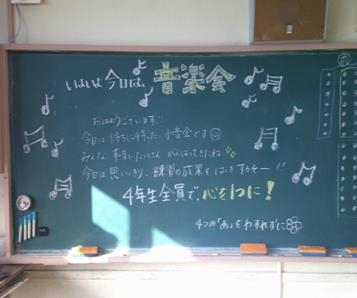 いよいよ今日は、音楽会
おはようございます!!
今日は待ちに待った小音会です
みんな本当にたくさんがんばってきたね
今日は思いっきり、練習の成果をはっきするぞー!!
4年生全員で、心を1つに!
4つの「あ」をわすれずに